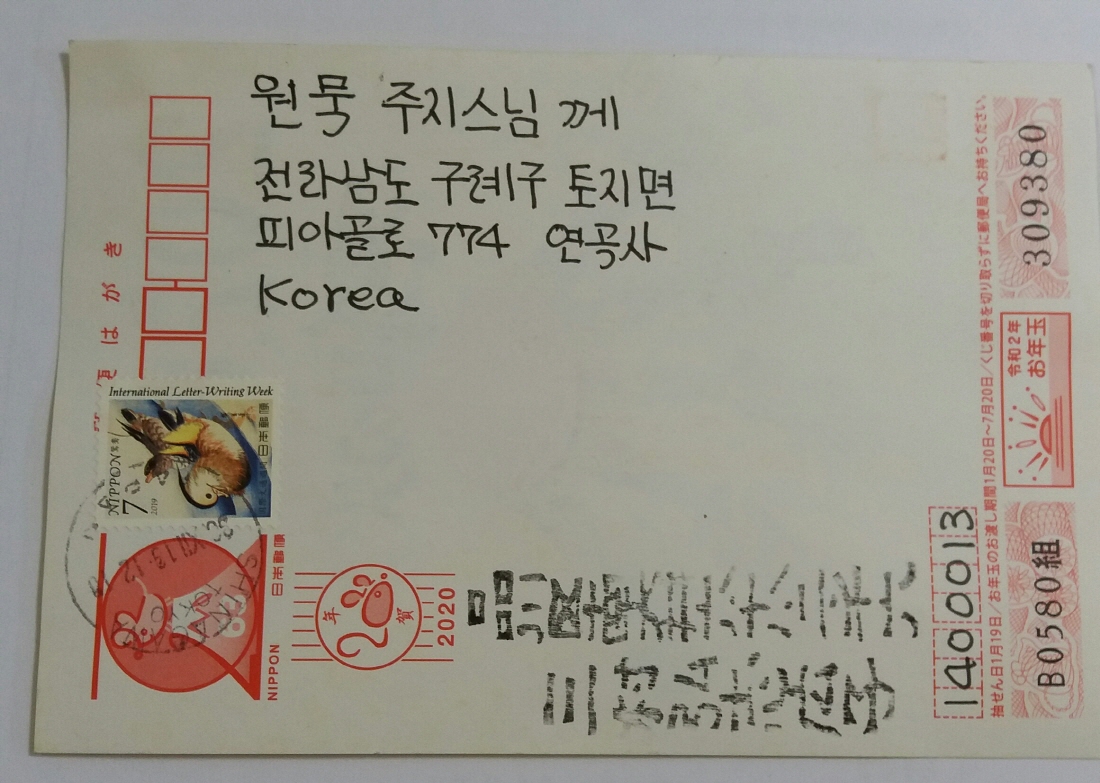 원묵 주지스님 께
전라남도 구례구 토지면
피아골로 774 연곡사
Korea
便 は が き
International Letter-Writing Week
日本郵便
NIPPON
7
2019
日本郵便
NIPPON
年賀
2020
1400013
抽せん日1月19日/お年玉のお渡し期間1月20日~7月20日/くじ番号を切り取らずに郵便局へお持ちください。
B0580組
令和2年
お年玉
309380